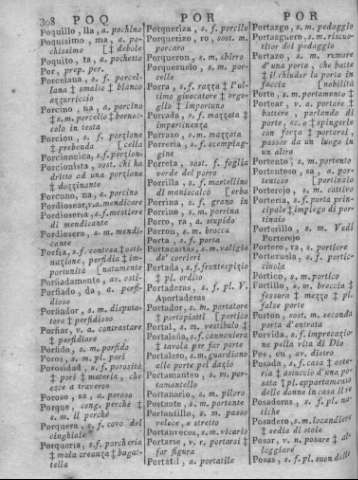 308 POQ
POR
POR
Poquillo, lla, a. pochino
Poquissimo, ma, a. pochissimo
[‡ debole
Poquito, ta, a. pochetto
Por, prep. per
Porcelana, s. f. porcellana ‡ smalto ‡ bianco azzurriccio
Porcino, na, a. porcino
‡ s. m. porcello ‡ bernoccolo in testa
Porcion, s. f. porzione
‡ prebenda [cella
Porcioncica, s.f. porzioncella
Porcionista, sost. chi ha dritto ad una porzione
‡ dozzinante
Porcuno, na, a. porcino
Pordiosear, v.a. mendicare
Pordioseria, s.f. mestiere di mendicante
Pordiosero, s. m. mendicante
Porfia, s.f. contesa ‡ ostinazione, perfidia ‡ importunità [natamente
Porfiadamente, av. osti-
Porfiado, da, a. perfidioso
Porfiador, s. m. disputatore ‡ perfidioso
Porfiar, v. a. contrastare
‡ perfidiare
Porfido, s. m. porfido
Poros, s. m. pl. pori
Porosidad, s. f. porosità
‡ pori ‡ materia, che esce a traverso
Poroso, sa, a. poroso
Porque, cong. perchè ‡ s. m. il perchè
Porquera, s. f. covo del cinghiale
Porqueria, s.f. porcheria
‡ mala creanza ‡ bagattella
Porqueriza, s. f. porcile
Porquerizo, ro, sost. m. porcaro
Porqueron, s. m. sbirro
Porquezuelo, s. m. porcello
Porra, s.f. mazza ‡ l'ultimo giuocatore ‡ orgoglio ‡ importuno
Porrada, s. f. mazzata ‡ impertinenza
Porrazo, s. m. mazzata
Porreria, s.f. scempiaggine
Porreta, sost. f. foglia verde del porro
Porrilla, s. f. martellino di maniscalco [erba
Porrina, s. f. grano in
Porrino, s. m. porrina
Porro, ra, a. stupido
Porron, s. m. brocca
Porta, s. f. porta
Portacartas, s. m. valigia de' corrieri
Portada, s.f. frontespizio
‡ pl. ordito
Portaderas, s. f. pl. V. Aportaderas
Portador, s. m. portatore
‡ portapiatti [portico
Portal, s. m. vestibulo ‡
Portalera, s. f. cannoniera
‡ tavola per far porte
Portalero, s. m. guardiano alle porte pel dazio
Portamanteo, s. m. portamantello
Portanario, s. m. piloro
Portante, s. m. portante
Portantillo, s. m. passo veloce, e stretto
Portanveces, s. m. vicario
Portarse, v. r. portarsi ‡ far figura
Portátil, a. portatile
Portazgo, s. m. pedaggio
Portazguero, s. m. riscuotitor del pedaggio
Portazo, s. m. rumore d'una porta, che batte
‡ il chiuder la porta in faccia [nobiltà
Porte, s. m. portamento ‡
Portear, v. a. portare ‡ battere, parlando di porte, ec. ‡ spingerle con forza ‡ portarsi, passar da un luogo in un altro
Portento, s. m. portento
Portentoso, sa, a. portentoso [portinajo
Porterejo, s. m. cattivo
Porteria, s.f. porta principale ‡ impiego di portinajo
Porterillo, s. m. Vedi Porterejo
Portero, ra, s. portiere
Portezuela, s. f. porticciuola
Pórtico, s. m. portico
Portillo, s. m. breccia ‡ fessura ‡ mezzo ‡ pl. false porte
Porton, sost. m. seconda porta d'entrata
Porvida, s.f. imprecazione pella vita di Dio
Pos, en, av. dietro
Posada, s.f. casa ‡ osteria
‡ astuccio d'una posata ‡ pl. appartamenti delle donne in casa il re
Posaderas, s. f. pl. natiche
Posadero, s. m. locandiere
‡ sedia di stoje
Posar, v. n. posare ‡ alloggiare
Posas, s. f. pl. suon delle